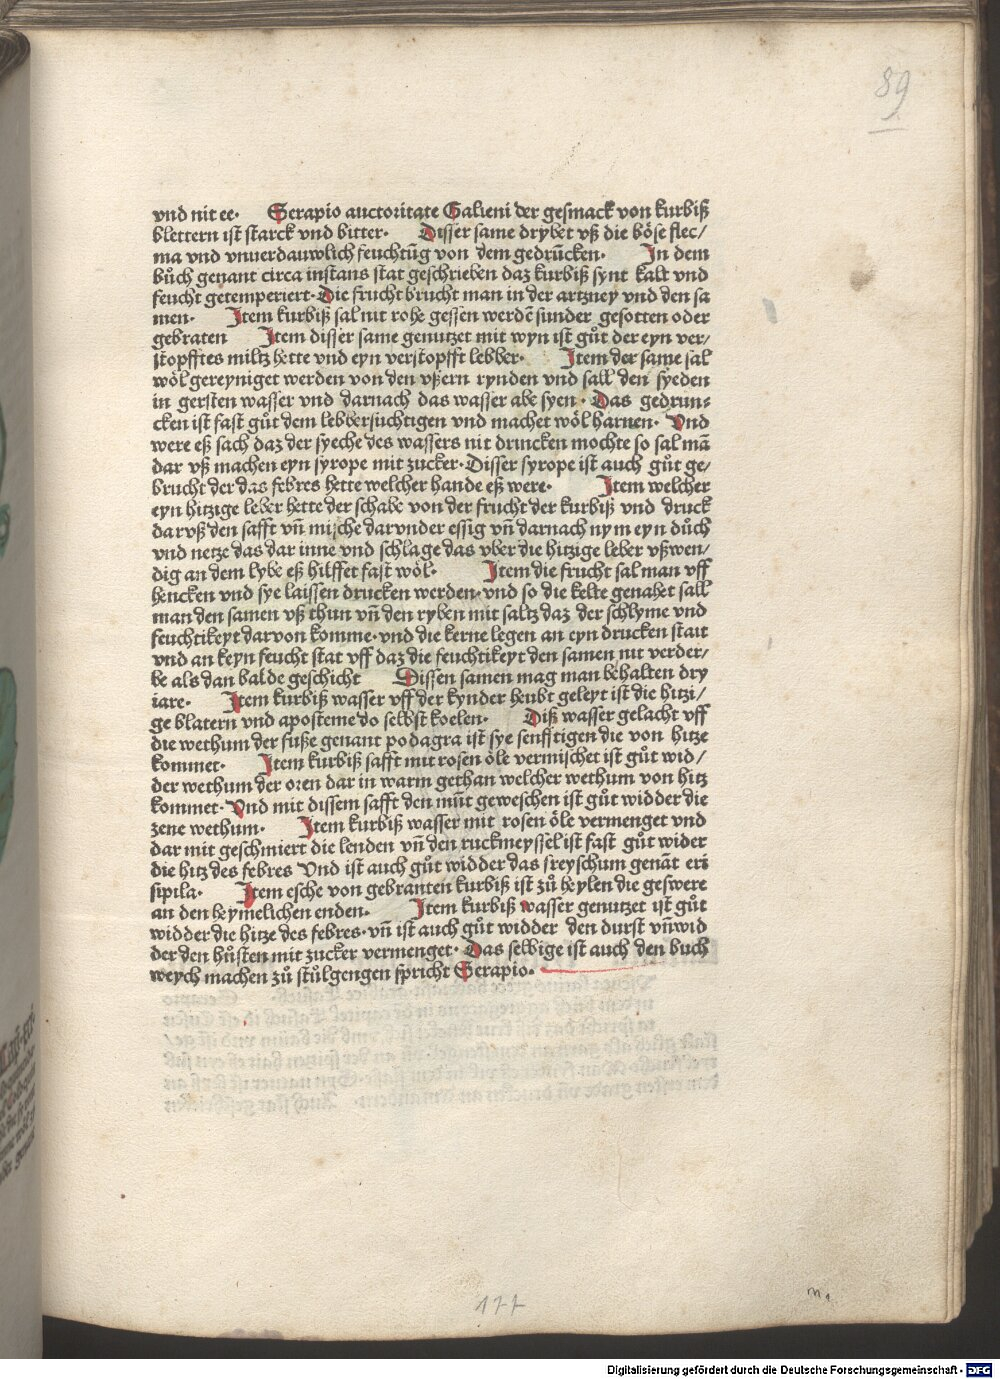 89
vnd nit ee· Serapio auctoritate Galieni der gesmack von kurbiß
blettern ist starck vnd bitter· Disser same drybet vß die böse flec/
ma vnd vnuerdauwlich feuchtũg von dem gedrücken· In dem
bůch genant circa instans stat geschrieben daz kurbiß synt kalt vnd
feucht getemperiert· Die frucht brucht man in der artzney vnd den sa
men· Item kurbiß sal nit rohe gessen werdē sunder gesotten oder
gebraten Item disser same genutzet mit wyn ist gůt der eyn ver/
stopfftes miltz hette vnd eyn verstopfft lebber· Item der same sal
wöl gereyniget werden von den vßern rynden vnd sall den syeden
in gersten wasser vnd darnach das wasser abe syen· Das gedrun⸗
cken ist fast gůt dem lebbersuchtigen vnd machet wöl harnen· Vnd
were eß sach daz der syeche des wassers nit drincken mochte so sal mā
dar vß machen eyn syrope mit zucker· Disser syrope ist auch gůt ge/
brucht der das febres hette welcher hande eß were· Item welcher
eyn hitzige leber hette der schabe von der frucht der kurbiß vnd druck
dar vß den safft vñ mische darvnder essig vñ darnach nym eyn důch
vnd netze das dar inne vnd schlage das vber die hitzige leber vßwen/
dig an dem lybe eß hilffet fast wöl· Item die frucht sal man vff
hencken vnd sye laissen drucken werden· vnd so die kelte genahet sall
man den samen vß thun vñ den ryben mit saltz daz der schlyme vnd
feuchtikeyt darvon komme· vnd die kerne legen an eyn drucken statt
vnd an keyn feucht stat vff daz die feuchtikeyt den samen nit verder/
be als dan balde geschicht Dissen samen mag man behalten dry
iare· Item kurbiß wasser vff der kynder heubt geleyt ist die hitzi/
ge blatern vnd aposteme do selbst koelen· Diß wasser gelacht vff
die wethum der fuße genant podagra ist sye senfftigen die von hitze
kommet· Item kurbiß safft mit rosen öle vermischet ist gůt wid/
der wethum der oren dar in warm gethan welcher wethum von hitz
kommet· Vnd mit dissem safft den mũt geweschen ist gůt widder die
zene wethum· Item kurbiß wasser mit rosen öle vermenget vnd
dar mit geschmiert die lenden vñ den ruckmeyssel ist fast gůt wider
die hitz des febres Vnd ist auch gůt widder das freyschum genāt eri
sipila· Item esche von gebranten kurbiß ist zů heylen die geswere
an den heymelichen enden· Item kurbiß wasser genutzet ist gůt
widder die hitze des febres· vñ ist auch gůt widder den durst vñ wid
der den hůsten mit zucker vermenget· Das selbige ist auch den buch
weych machen zů stůlgengen spricht Serapio·
177
Digitalisierung gefördert durch die Deutsche Forschungsgemeinschaft - DFG